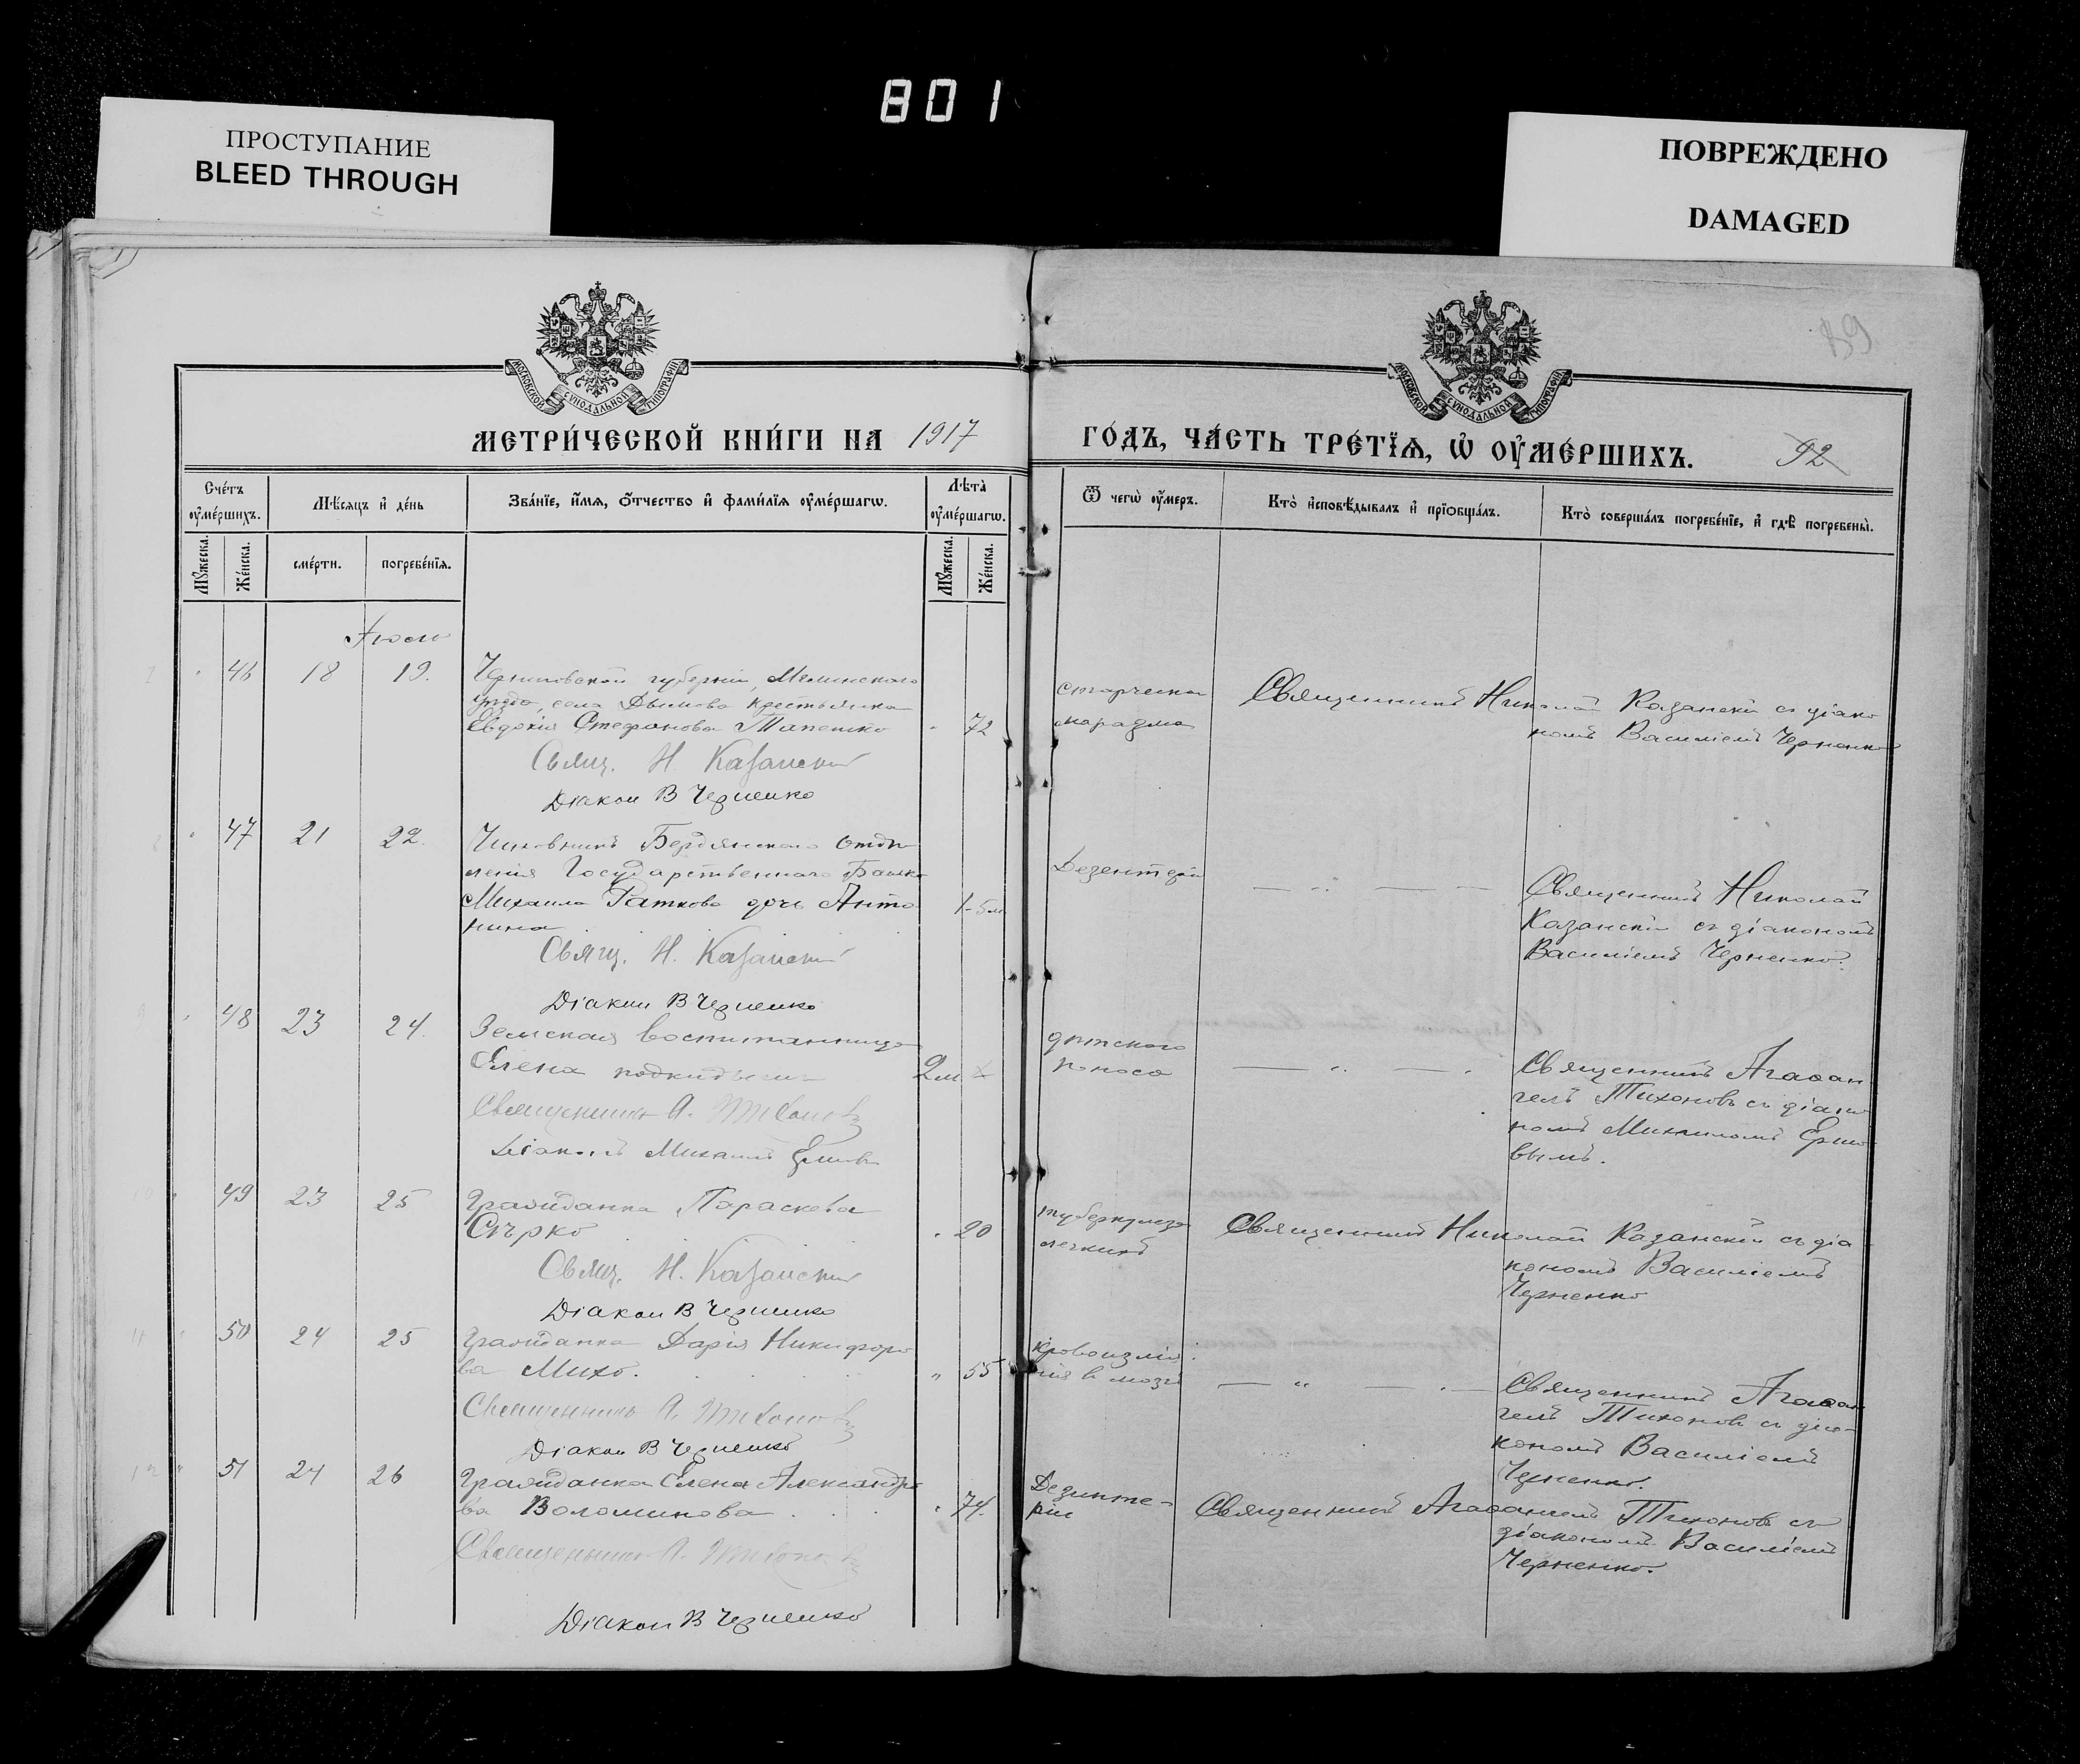 801
ПРОСТУПАНИЕ
BLEED THROUGH
ПОВРЕЖДЕНО
DAMAGED
89
МОСКОВСКОЙ СѴНОДАЛЬНОЙ ТИПОГРАФІИ
МОСКОВСКОЙ СѴНОДАЛЬНОЙ ТИПОГРАФІИ
МЕТРИ́ЧЕСКОЙ КНИ́ГИ НА 1917
ГО́ДЪ, ЧА́СТЬ ТРЕ́ТЇѦ, Ѡ҆ ОУ҆МЕ́РШИХЪ.
92
Сче́тъ оу҆ме́ршихъ.
Мѣ́сѧцъ и҆ де́нь
Зва́нїе, и҆́мѧ, ѻ҆́тчество и҆ фами́лїѧ оу҆ме́ршагѡ.
Лѣ́та̀ оу҆ме́ршагѡ.
Ѿ чегѡ̀ оу҆́меръ.
Кто̀ и҆сповѣ́дывалъ и҆ прїѡбща́лъ.
Кто̀ соверша́лъ погребе́нїе, и҆ гдѣ̀ погребены̀.
Мꙋ́жеска.
Же́нска.
сме́рти.
погребе́нїѧ.
Мꙋ́жеска.
Же́нска.
46 18 19.
Черниговской губерніи, Мглинского
уѣзда, села Дымова крестьянка
Евдокія Стефанова 72
Свящ. Н. Казанскій
Діакон В Черненко
старческій
маразмъ
Священникъ Николай Казанскій съ діако
номъ Василіемъ Черненко
47 21 22.
Чиновникъ Бердянского отдѣ
ленія Государственнаго Банка
Михаила Раткова дочь Анто
нина 1-5м
Свящ. Н. Казанскій
Діакон В Черненко
Дезентерія
— „ — —
Священникъ Николай
Казанскій съ діакономъ
Василіемъ Черненко.
48 23 24.
Земская воспитанница
Елена 2м
Священникъ А. Тихоновъ
Діаконъ Михаилъ
дѣтского
поноса
— „ —
Священникъ Агаѳан
гелъ Тихоновъ съ діако
номъ Михаиломъ
вымъ.
49 23 25
Гражданка Параскева
Сѣрко 20
Свящ. Н. Казанскій
Діакон В Черненко
туберкулеза
легкихъ
Священникъ Николай Казанскій съ діа
кономъ Василіемъ
Черненко
50 24 25
Гражданка Дарія Никифоро
ва Михо. „ 55
Священникъ А. Тихоновъ
Діакон В Черненко
кровоизлія
нія в мозгъ
— „ — —
Священникъ Агаѳан
гелъ Тихоновъ съ діа-
кономъ Василіемъ
Черненко.
51 24 26
Гражданка Елена Александро
ва Воломинова 74.
Священникъ А. Тихоновъ
Діакон В Черненко
Дезинте-
ріи
Священникъ Агаѳангелъ Тихоновъ съ
діакономъ Василіемъ
Черненко.